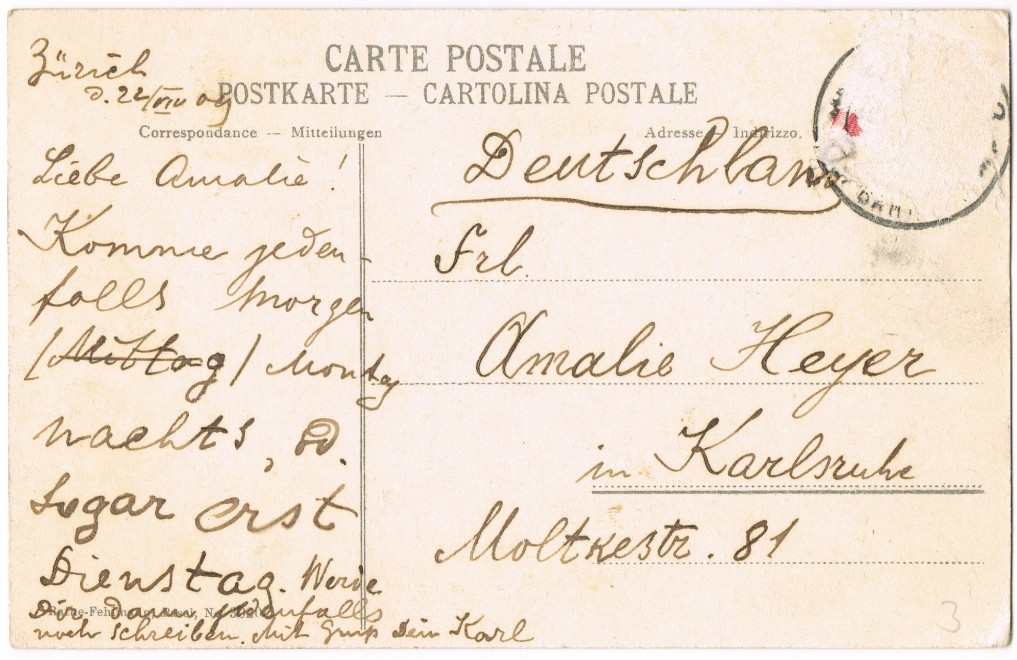 CARTE POSTALE
POSTKARTE — CARTOLINA POSTALE
Correspondance — Mitteilungen
Adresse Indirizzo.
Zürich
d. 22/VIII 09
Liebe Amalie!
Komme jeden-
falls morgen
(Mittag) Montag
nachts, od.
sogar erst
Dienstag. Werde
Dir dann jedenfalls
noch schreiben. Mit Gruß Dein Karl
Deutschland
Frl.
Amalie Heyer
in Karlsruhe
Moltkestr. 81
3